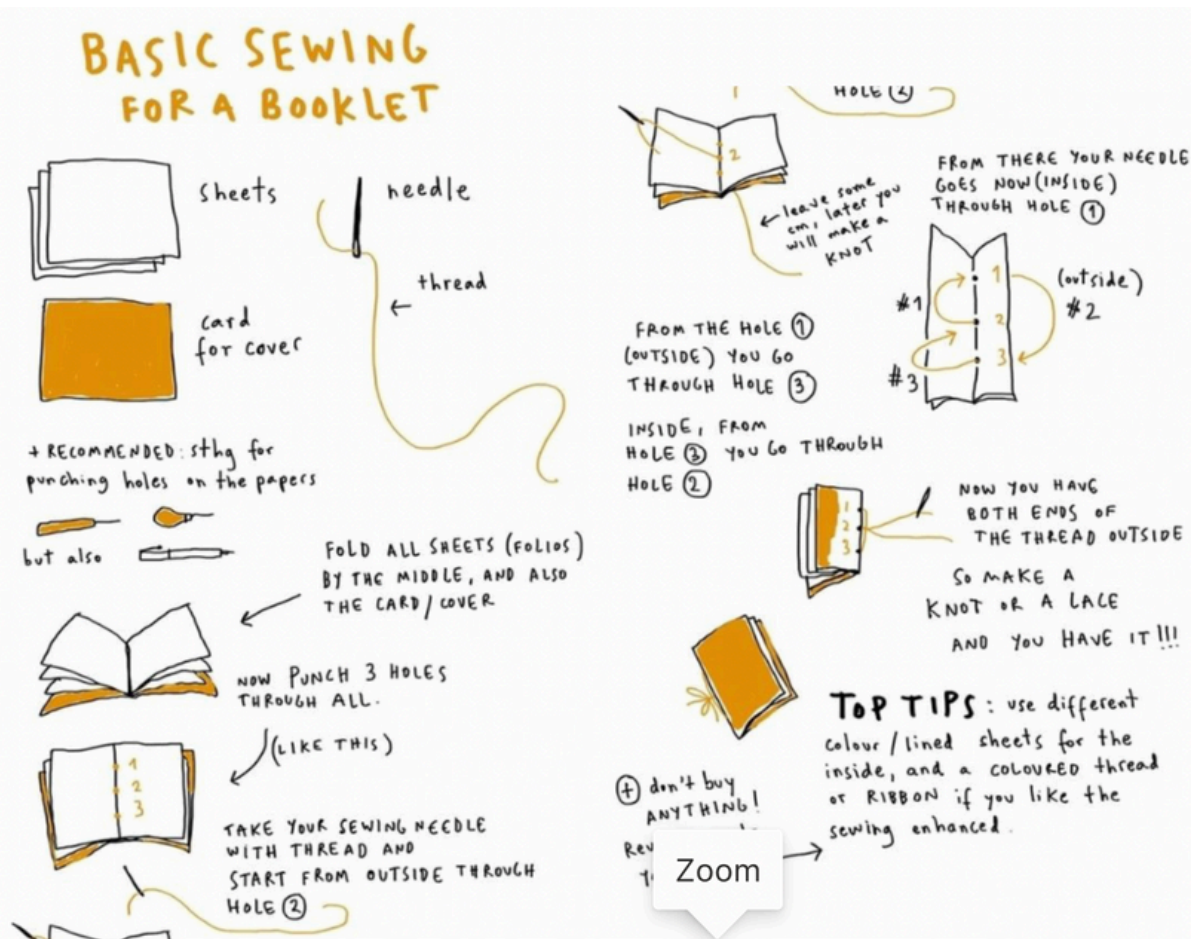 BASIC SEWING
FOR A BOOKLET
sheets
needle
thread
card
for cover
+ RECOMMENDED: sthg for
punching holes on the papers
but also
FOLD ALL SHEETS (FOLIOS)
BY THE MIDDLE, AND ALSO
THE CARD/COVER
NOW PUNCH 3 HOLES
THROUGH ALL.
(LIKE THIS)
1
2
3
TAKE YOUR SEWING NEEDLE
WITH THREAD AND
START FROM OUTSIDE THROUGH
HOLE 2
HOLE 2
2
leave some
cm, later you
will make a
KNOT
FROM THERE YOUR NEEDLE
GOES NOW (INSIDE)
THROUGH HOLE 1
1
2
3
#1
(outside)
#2
#3
FROM THE HOLE 1
(OUTSIDE) YOU GO
THROUGH HOLE 3
INSIDE, FROM
HOLE 3 YOU GO THROUGH
HOLE 2
1
2
3
NOW YOU HAVE
BOTH ENDS OF
THE THREAD OUTSIDE
SO MAKE A
KNOT OR A LACE
AND YOU HAVE IT!!!
TOP TIPS: use different
colour/lined sheets for the
inside, and a COLOURED thread
or RIBBON if you like the
sewing enhanced.
+ don't buy
ANYTHING!
Zoom